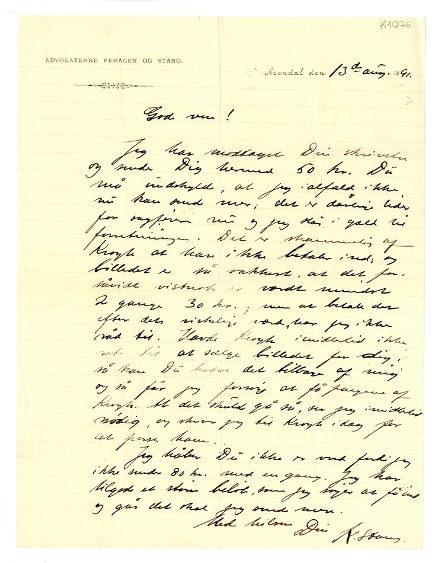 K1076
ADVOKATERNE FERAGEN OG STANG.
Arendal den 13de aug. 1891.
God ven!
Jeg har modtaget Din skrivelse
og sender Dig herved 50 kr. Du
må undskylde, at jeg ialfald ikke
nu kan sende mer; det er dårlige tider
for sagfører nu og jeg står i gæld til
forretningen. Det er skammelig af
Krogh at han ikke betaler ind, og
billedet er så vakkert, at det for-
såvidt vistnok er værdt mindst
2 gange 30 kr.; men at betale det
efter dets virkelige værd, har jeg ikke
råd til. Havde Krogh imidlertid ikke
ret til at sælge billedet for Dig,
så kan Du det tilbage af mig
og så får jeg forsøge at få pengene af
Krogh. At det skulde gå så, er jeg imidlertid
nødig, og skriver jeg til Krogh idag for
at presse ham.
Jeg håber Du ikke er vred fordi jeg
ikke sender 80 kr. med en gang. Jeg har
et større beløb, som jeg søger at få ind
og går det skal jeg sende mere.
Med hilsen Din K. Stang.